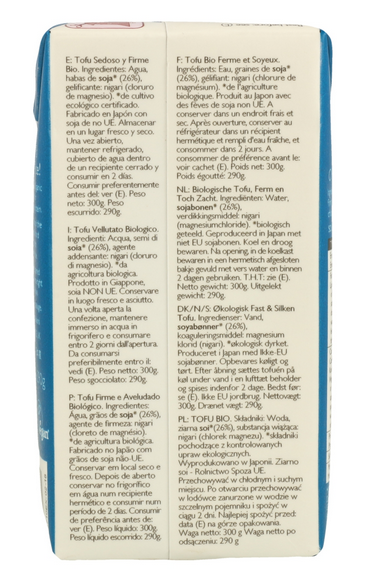 E: Tofu Sedoso y Firme
Bio. Ingredientes: Agua,
habas de soja* (26%),
gelificante: nigari (cloruro
de magnesio). *de cultivo
ecológico certificado.
Fabricado en Japón con
soja de no UE. Almacenar
en un lugar fresco y seco.
Una vez abierto,
mantener refrigerado,
cubierto de agua dentro
de un recipiente cerrado y
consumir en 2 días.
Consumir preferentemente
antes del: ver (E). Peso
neto: 300g. Peso
escurrido: 290g.
I: Tofu Vellutato Biologico.
Ingredienti: Acqua, semi di
soia* (26%), agente
addensante: nigari (cloruro
di magnesio). *da
agricoltura biologica.
Prodotto in Giappone,
soia NON UE. Conservare
in luogo fresco e asciutto.
Una volta aperta la
confezione, mantenere
immerso in acqua in
frigorifero e consumare
entro 2 giorni dall'apertura.
Da consumarsi
preferibilmente entro il:
vedi (E). Peso netto: 300g.
Peso sgocciolato: 290g.
P: Tofu Firme e Aveludado
Biológico. Ingredientes:
Água, grãos de soja* (26%),
agente de firmeza: nigari
(cloreto de magnésio).
*de agricultura biológica.
Fabricado no Japão com
grãos de soja não-UE.
Conservar em local seco e
fresco. Depois de aberto
conservar no frigorífico
em água num recipiente
hermético e consumir num
período de 2 dias. Consumir
de preferência antes de:
ver (E). Peso líquido: 300g.
Peso líquido escorrido: 290g.
F: Tofu Bio Ferme et Soyeux.
Ingrédients: Eau, graines de soja*
(26%), gélifiant: nigari (chlorure de
magnésium). *de l'agriculture
biologique. Produit au Japon avec
des fèves de soja non UE. A
conserver dans un endroit frais et
sec. Après ouverture, conserver au
réfrigérateur dans un récipient
hermétique et rempli d'eau fraîche, et
consommer dans 2 jours. A
consommer de préférence avant le:
voir cachet (E). Poids net: 300g.
Poids égoutté: 290g.
NL: Biologische Tofu, Ferm en
Toch Zacht. Ingrediënten: Water,
sojabonen* (26%),
verdikkingsmiddel: nigari
(magnesiumchloride). *biologisch
geteeld. Geproduceerd in Japan met
niet EU sojabonen. Koel en droog
bewaren. Na opening, in de koelkast
bewaren in een hermetisch afgesloten
bakje gevuld met vers water en binnen
2 dagen gebruiken. T.H.T: zie (E).
Netto gewicht: 300g. Uitgelekt
gewicht: 290g.
DK/N/S: Økologisk Fast & Silken
Tofu. Ingredienser: Vand,
soyabønner* (26%),
koaguleringsmiddel: magnesium
klorid (nigari). *økologisk dyrket.
Produceret i Japan med Ikke-EU
sojabønner. Opbevares køligt og
tørt. Efter åbning sættes tofuén på
køl under vand i en lufttæt beholder
og spises indenfor 2 dage. Bedst før:
se (E). Ikke EU jordbrug. Nettovægt:
300g. Drænet vægt: 290g.
PL: TOFU BIO. Składniki: Woda,
ziarna soi*(26%), substancja wiążąca:
nigari (chlorek magnezu). *składniki
pochodzące z kontrolowanych
upraw ekologicznych.
Wyprodukowano w Japonii. Ziarno
soi - Rolnictwo Spoza UE.
Przechowywać w chłodnym i suchym
miejscu. Po otwarciu przechowywać
w lodówce zanurzone w wodzie w
szczelnym pojemniku i spożyć w
ciągu 2 dni. Najlepiej spożyć przed:
data (E) na górze opakowania.
Waga netto: 300 g Waga netto po
odsączeniu: 290 g